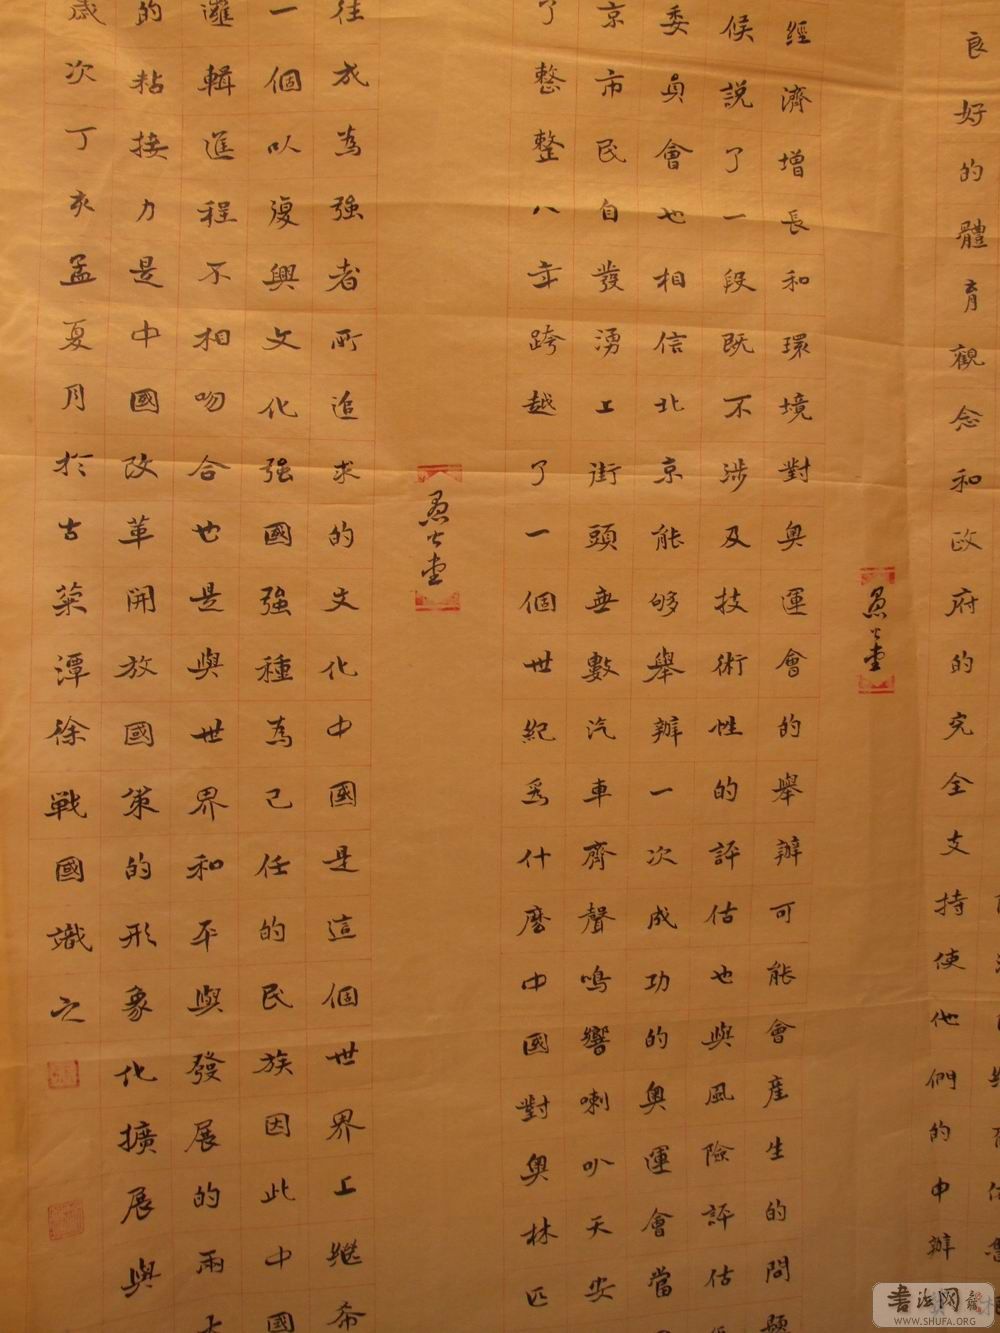 良好的體育觀念和政府的完全支持使他們的申辦
愚公堂
經濟增長和環境對奧運會的舉辦可能會產生的問題
候説了一段既不涉及技術性的評估也與風險評估
委員會也相信北京能够舉辦一次成功的奧運會當
京市民自發湧上街頭無數汽車齊聲鳴響喇叭天安
了整整八年跨越了一個世紀爲什麽中國對奧林匹
愚公堂
往成為強者所追求的文化中國是這個世界上繼希
一個以復興文化強國強種為己任的民族因此中國
邏輯進程不相吻合也是與世界和平與發展的兩大
的粘接力是中國改革開放國策的形象化擴展與
歲次丁亥孟夏月於古葉潭徐戰國識之
書法网
WWW.SHUFA.ORG